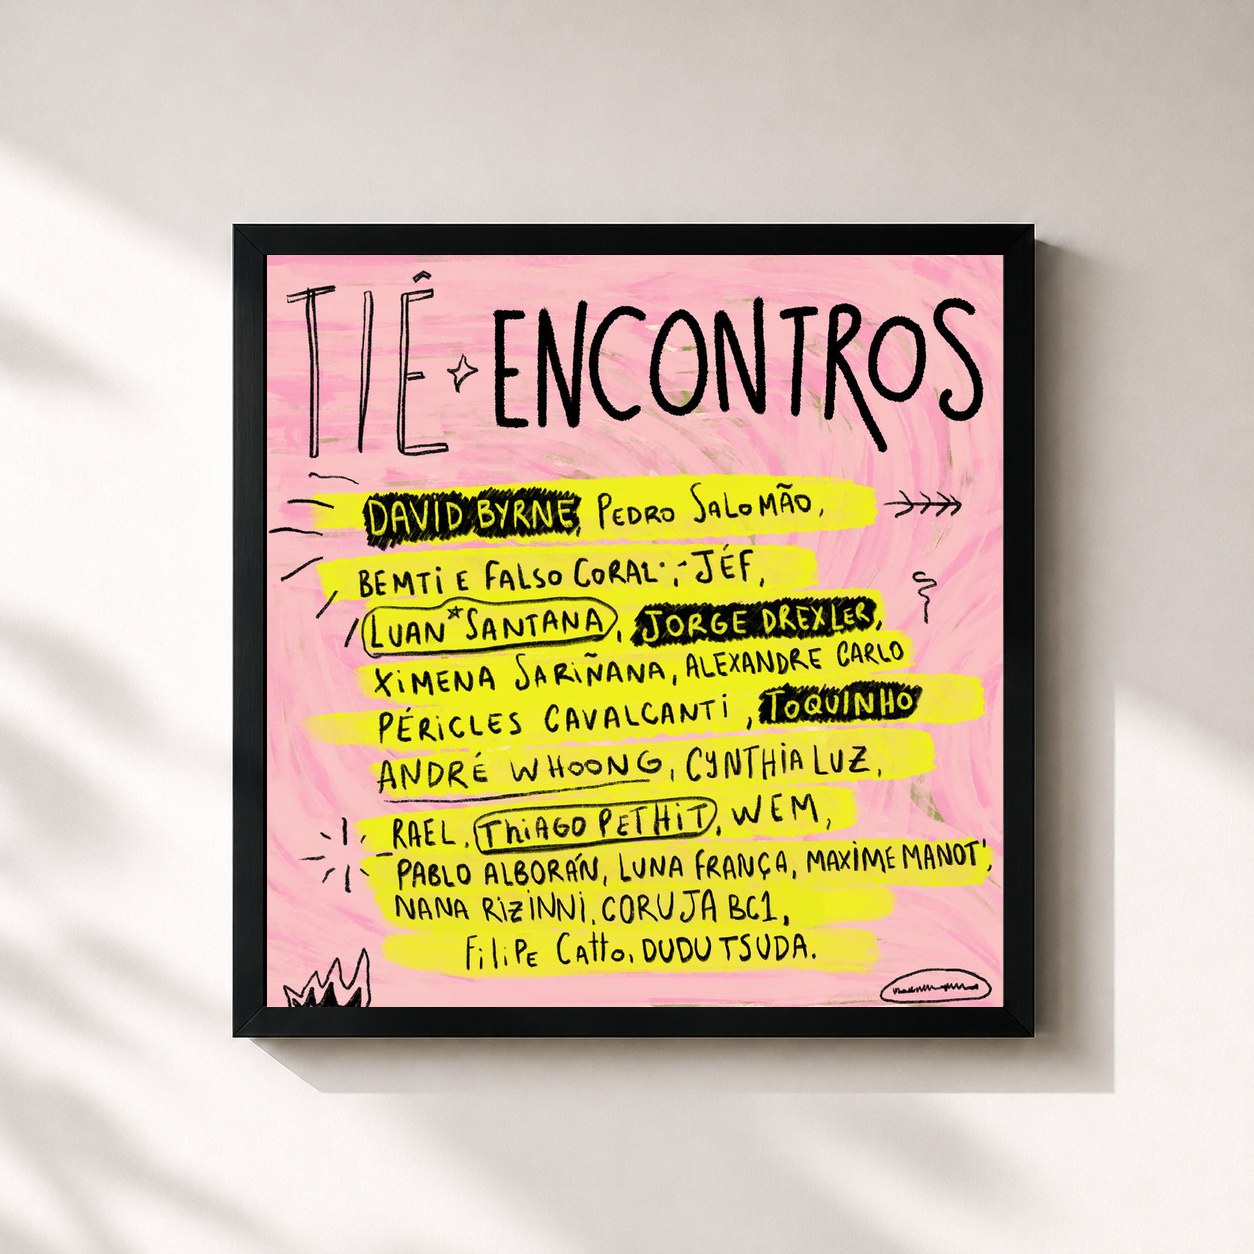 TIÊ ENCONTROS
DAVID BYRNE, PEDRO SALOMÃO,
BEMTI E FALSO CORAL, JÉF,
LUAN SANTANA, JORGE DREXLER,
XIMENA SARIÑANA, ALEXANDRE CARLO
PÉRICLES CAVALCANTI, TOQUINHO
ANDRÉ WHOONG, CYNTHIA LUZ,
RAEL, THIAGO PETHIT, WEM,
PABLO ALBORÁN, LUNA FRANÇA, MAXIME MANOT',
NANA RIZINNI, CORUJA BC1,
FILIPE CATTO, DUDU TSUDA.